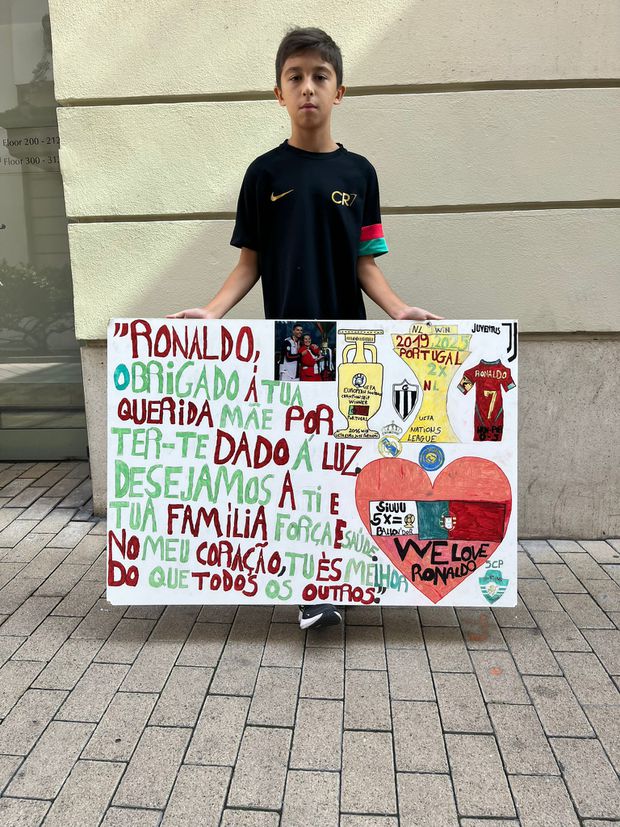 Floor 200 - 212
Floor 300 - 31
CR7
"RONALDO,
OBRIGADO Á TUA
QUERIDA MÃE POR
TER-TE DADO Á LUZ.
DESEJAMOS A TI E
TUA FAMÍLIA FORÇA E SAÚDE.
NO MEU CORAÇÃO, TU ÈS MELHOR
DO QUE TODOS OS OUTROS."
UEFA
EUROPEAN
CHAMPIONSHIP
WINNER
PORTUGAL
2016 WIN
NL WIN
2019, 2025
PORTUGAL
2X
NL
UEFA
NATIONS
LEAGUE
JUVENTUS
RONALDO
7
SIUUU
5X=
BALLON D'OR
WE LOVE
RONALDO
SCP